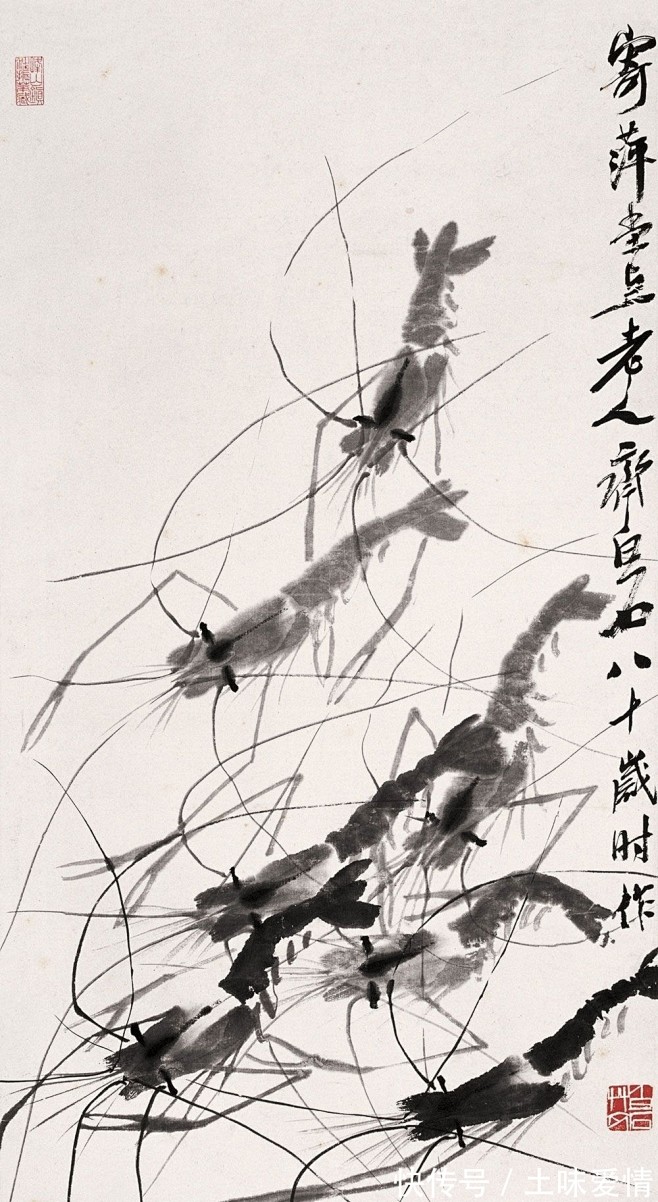 寄萍堂上老人齊白石八十歲时作
快传号 / 土味爱情